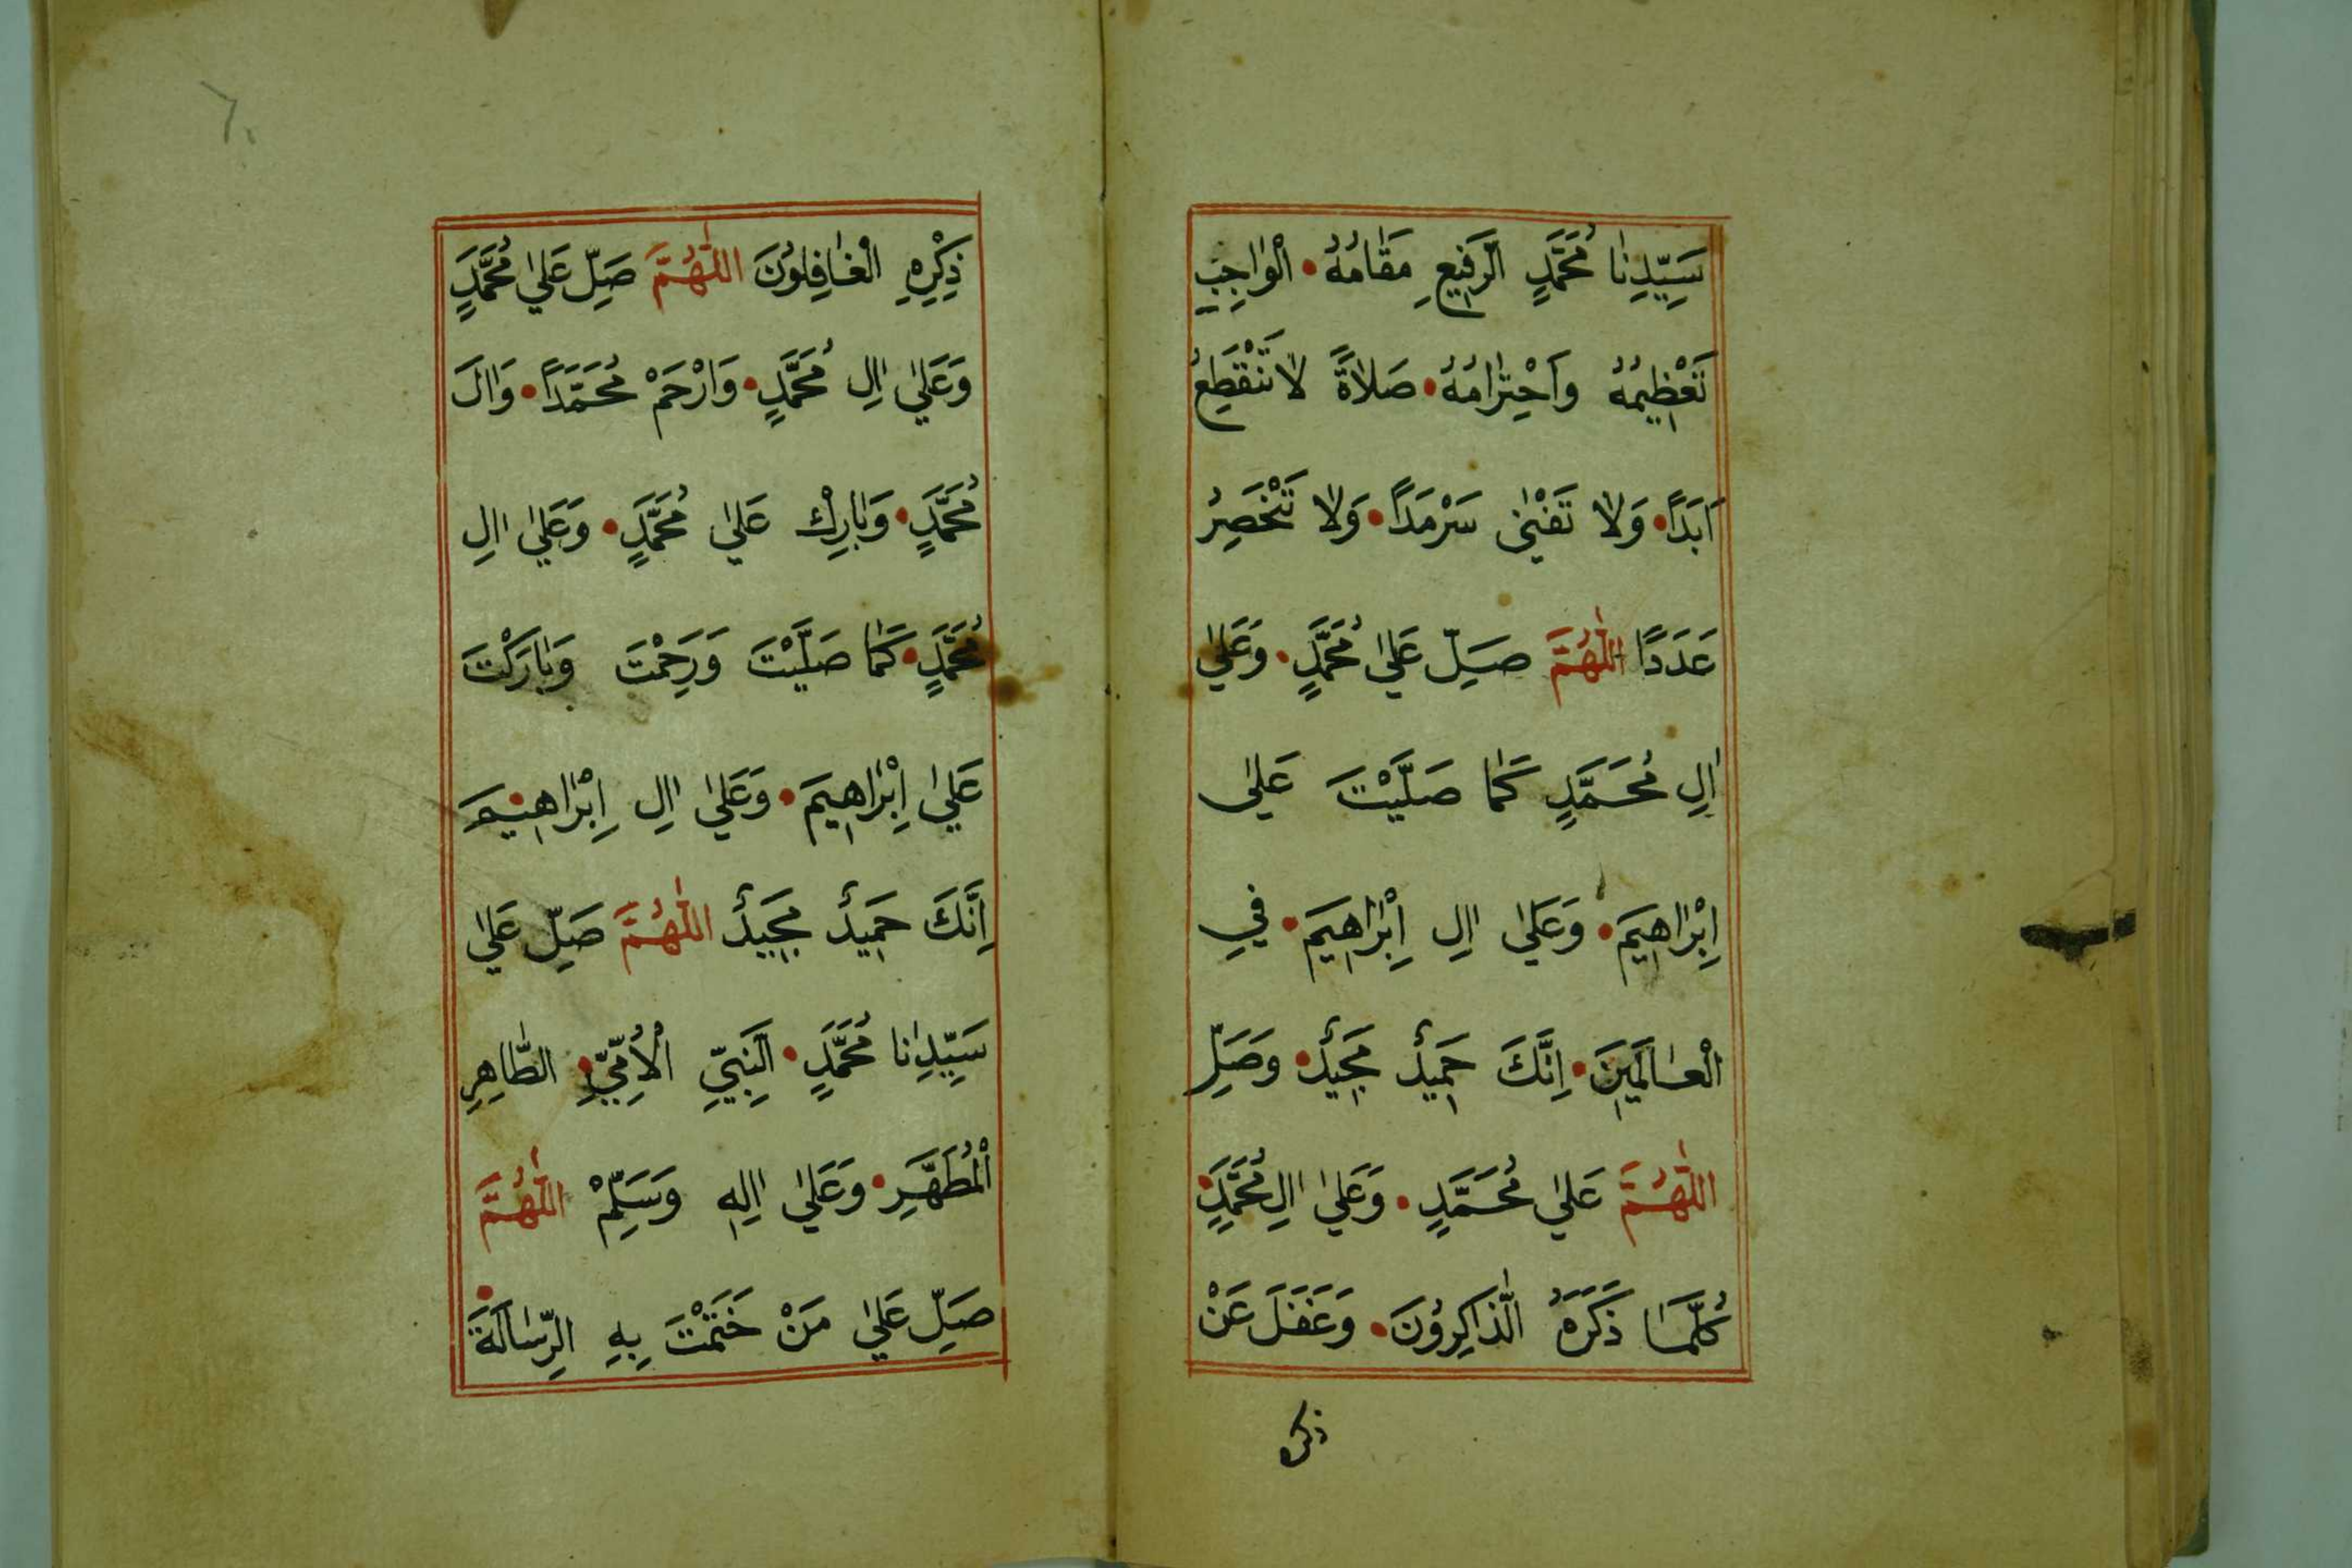 سَيِّدِنَا مُحَمَّدٍ الرَّفِيعِ مَقَامُهُ • الْوَاجِبِ
تَعْظِيمُهُ وَاحْتِرَامُهُ • صَلَاةً لَا تَنْقَطِعُ
اَبَدًا • وَلَا تَفْنٰى سَرْمَدًا • وَلَا تَنْحَصِرُ
عَدَدًا اللّٰهُمَّ صَلِّ عَلٰى مُحَمَّدٍ • وَعَلٰى
اٰلِ مُحَمَّدٍ كَمَا صَلَّيْتَ عَلٰى
اِبْرَاهِيمَ • وَعَلٰى اٰلِ اِبْرَاهِيمَ • فِي
الْعَالَمِينَ • اِنَّكَ حَمِيدٌ مَجِيدٌ • وَصَلِّ
اللّٰهُمَّ عَلٰى مُحَمَّدٍ • وَعَلٰى اٰلِ مُحَمَّدٍ •
كُلَّمَا ذَكَرَهُ الذَّاكِرُونَ • وَغَفَلَ عَنْ
ذكره
٦٠
ذِكْرِهِ الْغَافِلُونَ اللّٰهُمَّ صَلِّ عَلٰى مُحَمَّدٍ
وَعَلٰى اٰلِ مُحَمَّدٍ • وَارْحَمْ مُحَمَّدًا • وَاٰلَ
مُحَمَّدٍ • وَبَارِكْ عَلٰى مُحَمَّدٍ • وَعَلٰى اٰلِ
مُحَمَّدٍ • كَمَا صَلَّيْتَ وَرَحِمْتَ وَبَارَكْتَ
عَلٰى اِبْرَاهِيمَ • وَعَلٰى اٰلِ اِبْرَاهِيمَ •
اِنَّكَ حَمِيدٌ مَجِيدٌ اللّٰهُمَّ صَلِّ عَلٰى
سَيِّدِنَا مُحَمَّدٍ • النَّبِيِّ الْاُمِّيِّ • الطَّاهِرِ
الْمُطَهَّرِ • وَعَلٰى اٰلِهِ وَسَلِّمْ اللّٰهُمَّ
صَلِّ عَلٰى مَنْ خَتَمْتَ بِهِ الرِّسَالَةَ •